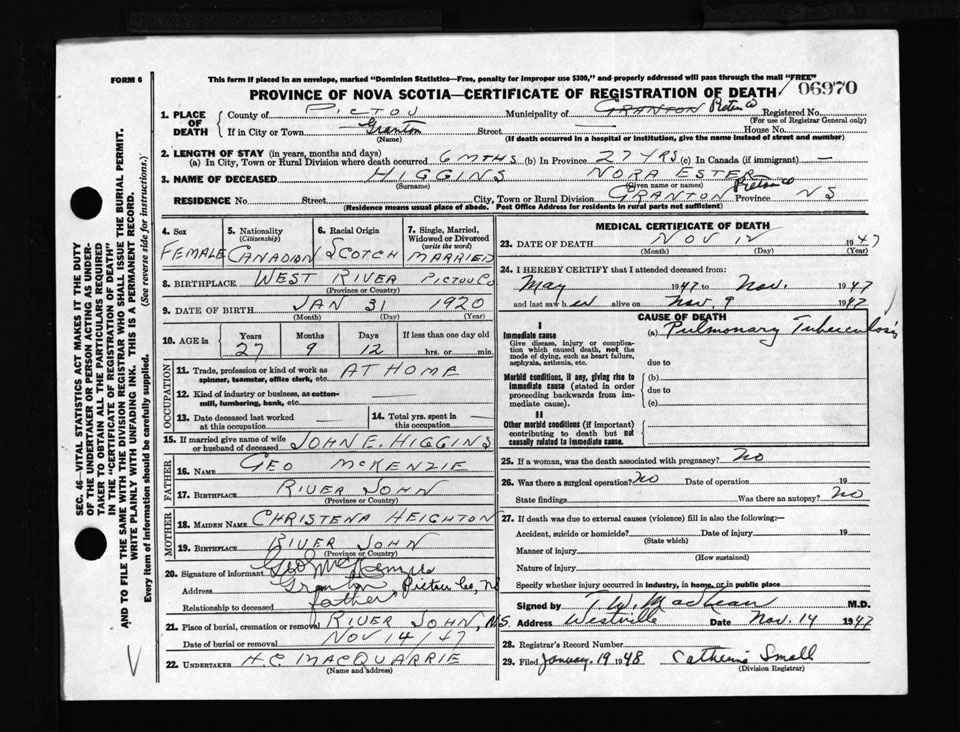 FORM 6
This form if placed in an envelope, marked "Dominion Statistics—Free, penalty for improper use $300," and properly addressed will pass through the mail "FREE"
PROVINCE OF NOVA SCOTIA—CERTIFICATE OF REGISTRATION OF DEATH 06970
1. PLACE OF DEATH County of PICTOU Municipality of GRANTON Pictou Co Registered No.
(For use of Registrar General only)
If in City or Town Granton Street — House No.
(Name) (If death occurred in a hospital or institution, give the name instead of street and number)
2. LENGTH OF STAY (in years, months and days)
(a) In City, Town or Rural Division where death occurred 6 MTHS (b) In Province 27 YRS (c) In Canada (if immigrant) —
3. NAME OF DECEASED HIGGINS NORA ESTER
(Surname) (Given name or names)
RESIDENCE No. Street City, Town or Rural Division GRANTON Pictou Co Province NS
(Residence means usual place of abode. Post Office Address for residents in rural parts not sufficient)
4. Sex FEMALE
5. Nationality (Citizenship) CANADIAN
6. Racial Origin SCOTCH
7. Single, Married, Widowed or Divorced (write the word) MARRIED
8. BIRTHPLACE WEST RIVER PICTOU Co
(Province or Country)
9. DATE OF BIRTH JAN 31 1920
(Month) (Day) (Year)
10. AGE in Years Months Days If less than one day old
27 9 12 hrs. or min.
OCCUPATION
11. Trade, profession or kind of work as spinner, teamster, office clerk, etc. AT HOME
12. Kind of industry or business, as cotton-mill, lumbering, bank, etc. —
13. Date deceased last worked at this occupation —
14. Total yrs. spent in this occupation —
15. If married give name of wife or husband of deceased JOHN E. HIGGINS
FATHER
16. NAME GEO McKENZIE
17. BIRTHPLACE RIVER JOHN
(Province or Country)
MOTHER
18. MAIDEN NAME CHRISTENA HEIGHTON
19. BIRTHPLACE RIVER JOHN
(Province or Country)
20. Signature of informant Geo McKenzie
Address Granton Pictou Co, NS
Relationship to deceased father
21. Place of burial, cremation or removal RIVER JOHN, N.S.
Date of burial or removal NOV 14/47
22. UNDERTAKER H.C. MACQUARRIE
(Name and address)
MEDICAL CERTIFICATE OF DEATH
23. DATE OF DEATH NOV 12 1947
(Month) (Day) (Year)
24. I HEREBY CERTIFY that I attended deceased from:
May 1947 to Nov. 1947
and last saw her alive on Nov. 9 1947
CAUSE OF DEATH
I
Immediate cause (a) Pulmonary Tuberculosis
Give disease, injury or complication which caused death, not the mode of dying, such as heart failure, asphyxia, asthenia, etc.
due to
Morbid conditions, if any, giving rise to immediate cause (stated in order proceeding backwards from immediate cause).
(b)
due to
(c)
II
Other morbid conditions (if important) contributing to death but not causally related to immediate cause.
25. If a woman, was the death associated with pregnancy? No
26. Was there a surgical operation? No Date of operation 19
State findings Was there an autopsy? No
27. If death was due to external causes (violence) fill in also the following:—
Accident, suicide or homicide? Date of injury 19
(State which)
Manner of injury
(How sustained)
Nature of injury
Specify whether injury occurred in industry, in home, or in public place
Signed by T.W. MacLean M.D.
Address Westville Date Nov. 14 1947
28. Registrar's Record Number
29. Filed January 19 1948 Catherine Small
(Division Registrar)
SEC. 46—VITAL STATISTICS ACT MAKES IT THE DUTY
OF THE UNDERTAKER OR PERSON ACTING AS UNDER-
TAKER TO OBTAIN ALL THE PARTICULARS REQUIRED
IN THE "CERTIFICATE OF REGISTRATION OF DEATH"
AND TO FILE THE SAME WITH THE DIVISION REGISTRAR WHO SHALL ISSUE THE BURIAL PERMIT.
WRITE PLAINLY WITH UNFADING INK. THIS IS A PERMANENT RECORD.
Every item of information should be carefully supplied. (See reverse side for instructions.)